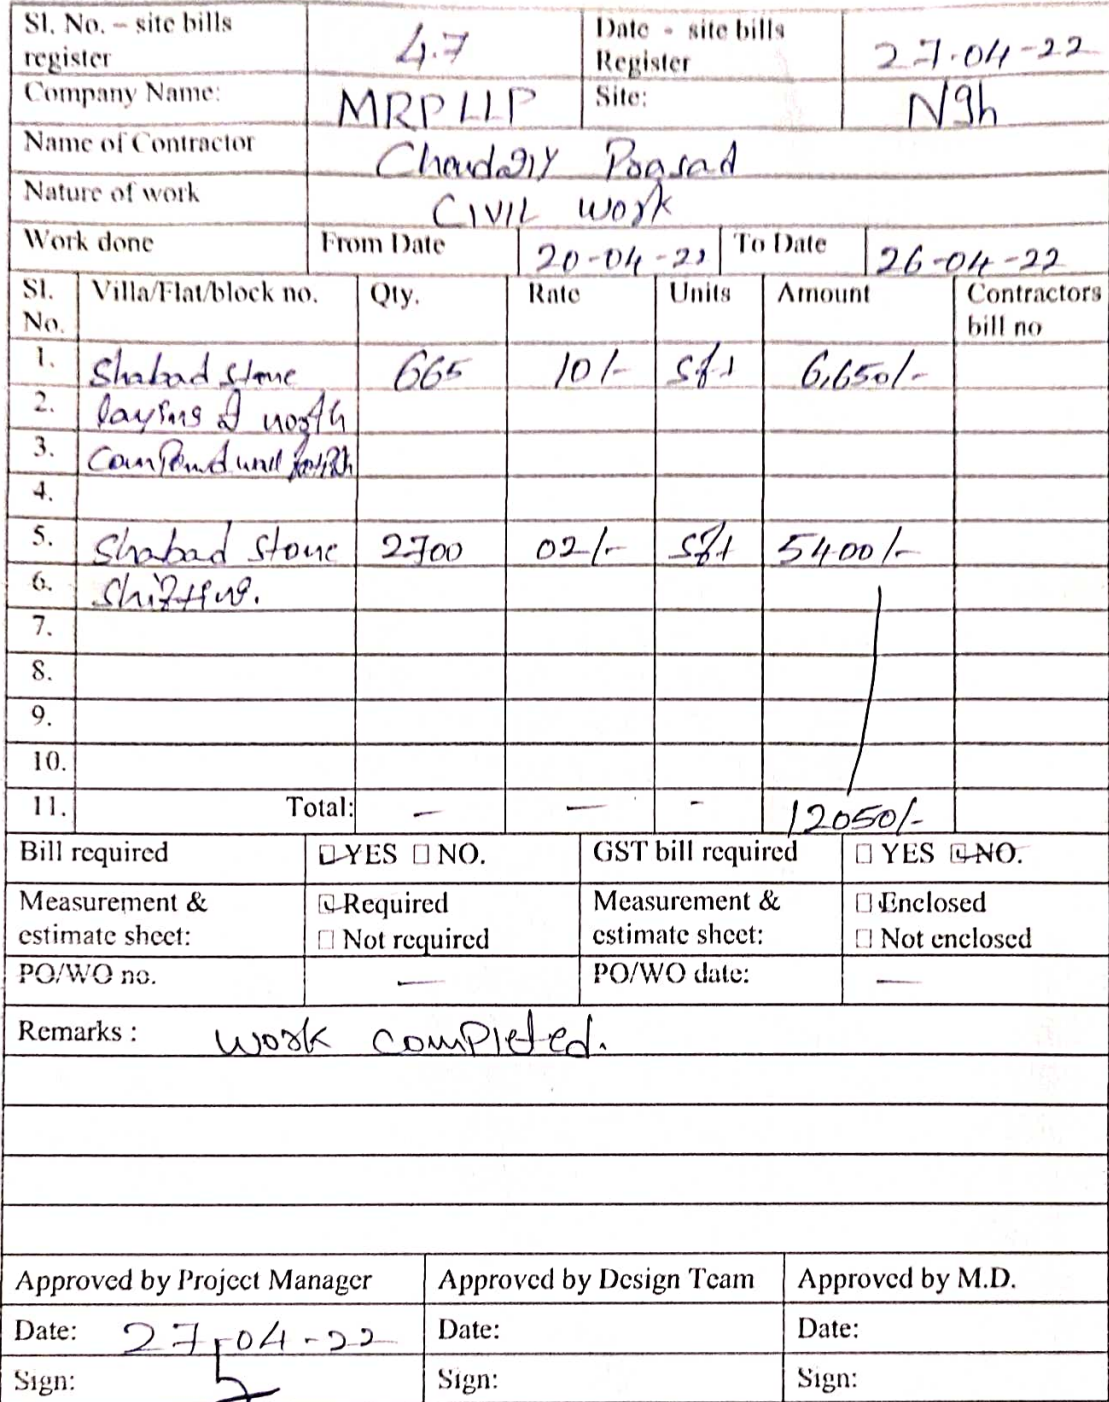 Sl. No. – site bills register 47 Date - site bills Register 27-04-22
Company Name: MRPLLP Site: Ngh
Name of Contractor Choudary Prasad
Nature of work CIVIL work
Work done From Date 20-04-22 To Date 26-04-22
Sl. No. Villa/Flat/block no. Qty. Rate Units Amount Contractors bill no
1. Shabad stone 665 10/- sft 6,650/-
2. laying @ north
3. Compound wall
4.
5. Shabad stone 2700 02/- sft 5400/-
6. Shifting.
7.
8.
9.
10.
11. Total: — — - 12050/-
Bill required YES NO. GST bill required YES NO.
Measurement & estimate sheet: Required Not required Measurement & estimate sheet: Enclosed Not enclosed
PO/WO no. — PO/WO date: —
Remarks : work completed.
Approved by Project Manager Approved by Design Team Approved by M.D.
Date: 27-04-22 Date: Date:
Sign: Sign: Sign: